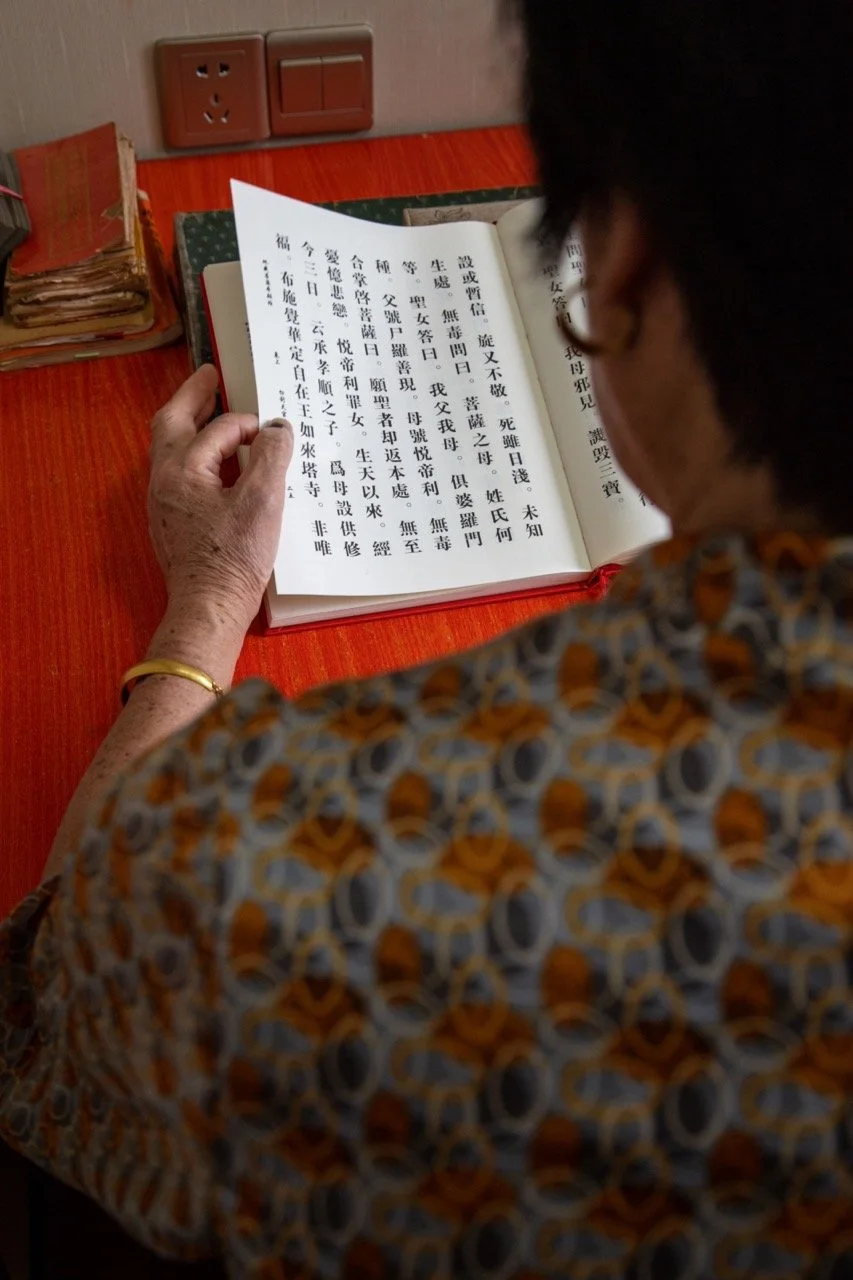 問聖女
聖女答曰。我母邪見。譏毀三寶。
設或暫信。旋又不敬。死雖日淺。未知
生處。無毒問曰。菩薩之母。姓氏何
等。聖女答曰。我父我母。俱婆羅門
種。父號尸羅善現。母號悅帝利。無毒
合掌啓菩薩曰。願聖者却返本處。無至
憂憶悲戀。悅帝利罪女。生天以來。經
今三日。云承孝順之子。爲母設供修
福。布施覺華定自在王如來塔寺。非唯
卷上